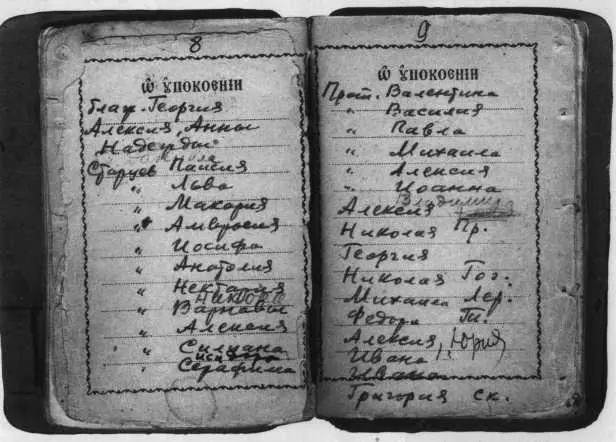 8
Ѿ ѹпокоенїи
блаж. Георгия
Алексия, Анны
Надежды
Старцев Паисия
" Льва
" Макария
" Амвросия
" Иосифа
" Анатолия
" Нектария
" Варнавы
" Алексия
" Силуана
" Серафима
9
Ѿ ѹпокоенїи
Прот. Валентина
" Василия
" Павла
" Михаила
" Алексия
" Иоанна
Владимира
Алексия
Николая Пр.
Георгия
Николая Гог.
Михаила Лер.
Федора Т.
Алексия, Юрия
Ивана
Ивана
Григория Ск.